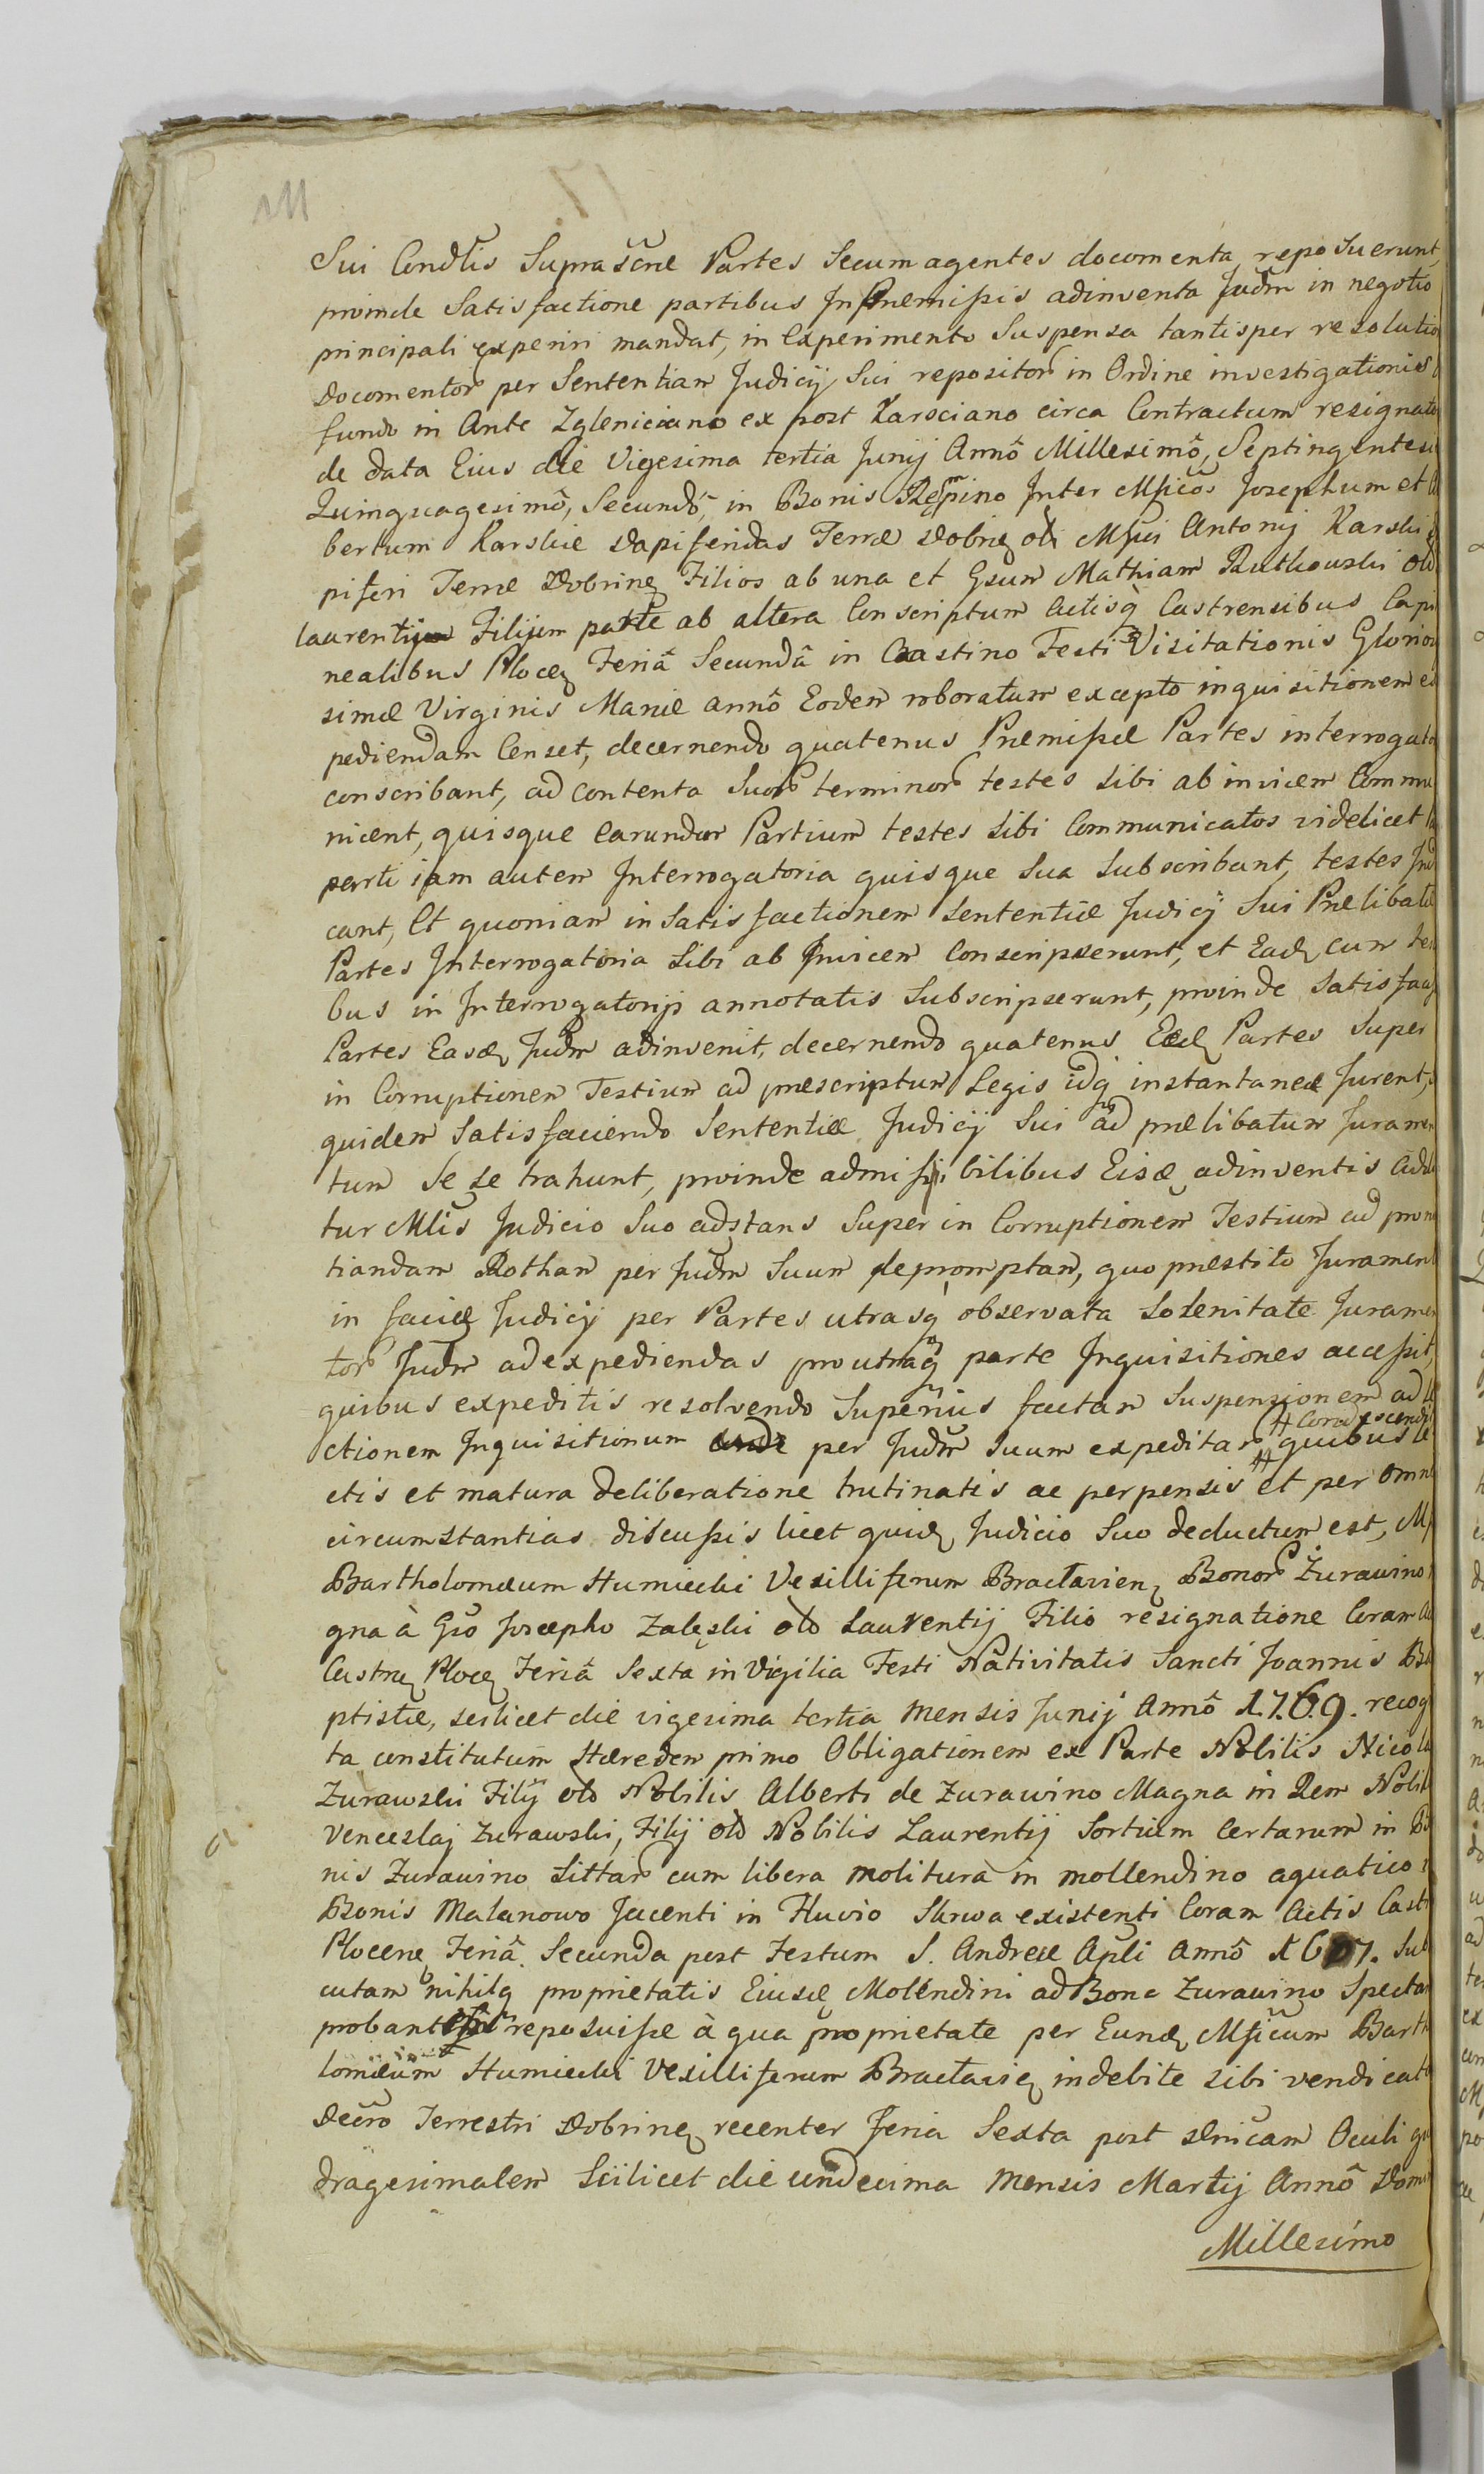 Sui Condlis Suprascrae Partes Secum agentes documenta reposuerunt,
proinde Satisfactione partibus In Praemissis adinventa Judm in negotio
principali experiri mandat, in Experimento Suspensa tantisper resolutio
Documentor per Sententiam Judicij Sui repositor in Ordine investigationis
fundo in Ante Zgleniciano ex post Karsciano circa Contractum resignato
de data Eius die Vigesima tertia Junij Annô Millesimô, Septingentesi
Quinquagesimô, Secundô, in Bonis Inter Mficos Josephum et
bertum Karskie Dapiferidas Terrae Dobrin olim Mfici Antonij Karski
piferi Terrae Dobrinen Filios ab una et Gsum Mathiam Rutkowski olim
Laurentij Filium parte ab altera Conscriptum Actisq Castrensibus Capi
nealibus Plocen Feriâ Secundâ in Crastino Festi Visitationis Glorio
simae Virginis Mariae annô Eodem roboratum excepto inquisitionem ex
pediendam Censet, decernendo quatenus Praemissae Partes interrogato
conscribant, ad contenta Suor terminor testes Sibi ab invicem Commu
nicent, quisque earundem Partium testes Sibi Communicatos videlicet
parti iam autem Interrogatoria quisque Sua Subscribant, testes Ind
cant, Et quoniam in Satisfactionem Sententiae Judicij Sui Praelibatae
Partes Interrogatoria Sibi ab Invicem Conscripserunt, et Eadem cum tes
bus in Interrogatorijs annotatis Subscripserunt, proinde Satisfac
Partes Easdem Judm adinvenit, decernendo quatenus Eaedem Partes Super
in Corruptionem Testium ad praescriptum Legis idq instantanee Jurent,
quidem Satisfaciendo Sententiae Judicij Sui ad praelibatum Juramen
tum Se se trahunt, proinde admissibilibus Eisdem adinventis
tur Mlis Judicio Suo adstans Super in Corruptionem Testium ad pron
tiandam Rotham per Judm Suum depromptam, quo praestito Jurament
in facie Judicij per Partes utrasq observata Solenitate Juramen
tor Judm ad expediendas pro utraq parte Inquisitiones accessit,
quibus expeditis resolvendo Superius factam Suspensionem ad le
ctionem Inquisitionum per Judm Suum expeditar quibus le
ctis et matura deliberatione trutinatis ac perpensis et per omne
circumstantias discussis licet quidem Judicio Suo deductum est, Mf
Bartholomaeum Humiecki Vexilliferum Braclavien Bonor Żurawino
gna à Gso Josepho Zaleski olim Laurentij Filio resignatione Coram A
Castren Plocen Feriâ Sexta in Vigilia Festi Nativitatis Sancti Joannis Ba
ptistae, scilicet die vigesima tertia Mensis Junij Annô 1769. recog
ta constitutum Haeredem primo Obligationem ex Parte Nobilis Nicola
Żurawski Filij olim Nobilis Alberti de Żurawino Magna in Rem Nobil
Venceslaj Żurawski, Filij olim Nobilis Laurentij Sortium Certarum in Bo
nis Żurawino Sittar cum libera molitura in mollendino aquatico
Bonis Malanowo Jacenti in Fluvio Skrwa existenti Coram Actis Castr
Plocen Feriâ Secunda post Festum S. Andreae Apli Annô 1607. Sub
cutam nihilq proprietatis Eiusdem Molendini ad Bona Żurawino Spectan
probant reposuisse à qua proprietate per Eundem Mficum Barth
lomaeum Humiecki Vexilliferum Braclavien indebite sibi vendicata
Decro Terrestri Dobrinen recenter Feria Sexta post Dnicam Oculi qu
dragesimalem Scilicet die undecima Mensis Martij Annô Domi
Millesimo